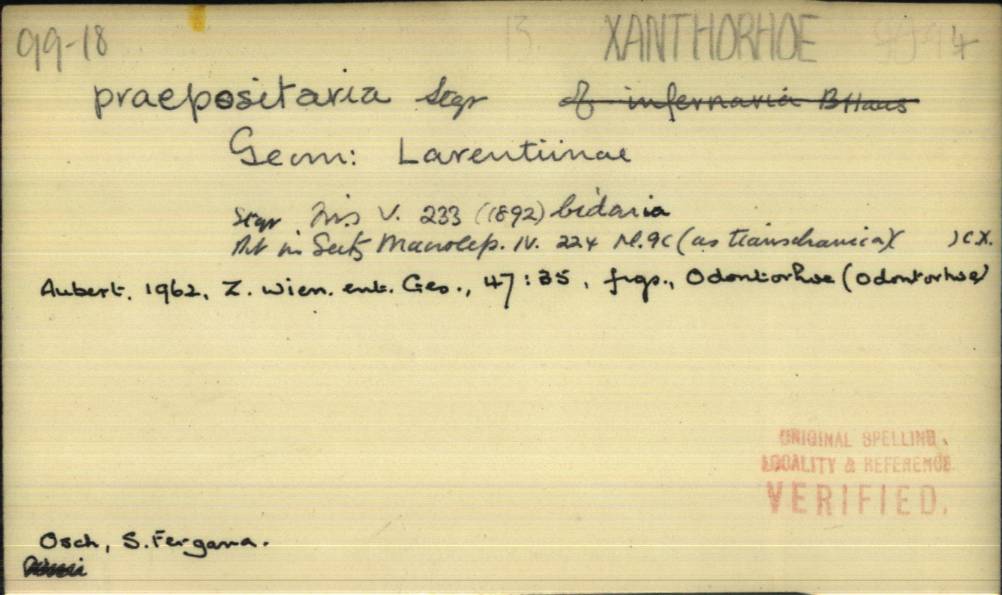 99-18 XANTHORHOE 4
praepositaria Stgr of infernaria BHaus
Geom: Larentiinae
Stgr Iris V. 233 (1892) bidaria
in Seitz Macrolep. IV. 224 (as transchanica) ) C.X.
Aubert. 1962, Z. wien. ent. Ges., 47: 35, figs., Odontorhoe (Odontorhoe)
ORIGINAL SPELLING.
LOCALITY & REFERENCE
VERIFIED.
Osch, S. Fergana.